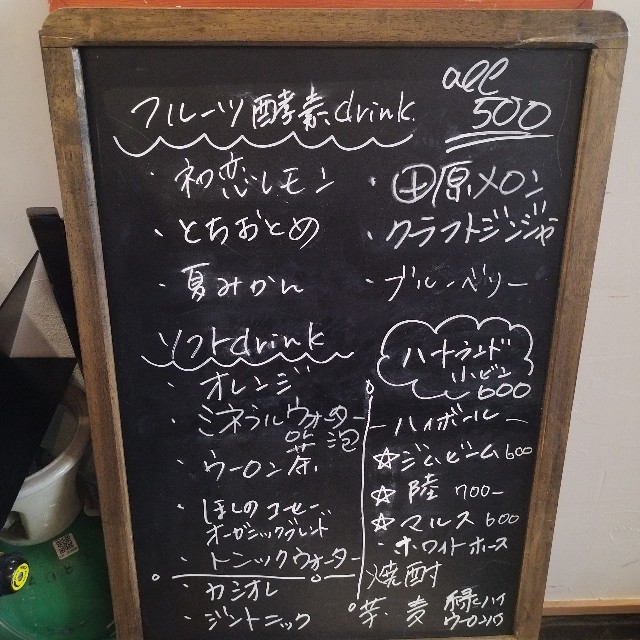 all
500
フルーツ酵素drink
・初恋レモン
・田原メロン
・とちおとめ
・クラフトジンジャー
・夏みかん
・ブルーベリー
ソフトdrink
・オレンジ
・ミネラルウォーター
泡
・ウーロン茶
・ほしのコーヒー
オーガニックブレンド
・トニックウォーター
・カシオレ
・ジントニック
ハートランド
小ビン
600
ハイボール
☆ジムビーム 600
☆陸 700-
☆マルス 600
・ホワイトホース
焼酎
芋・麦
緑ハイ
ウーロンハイ